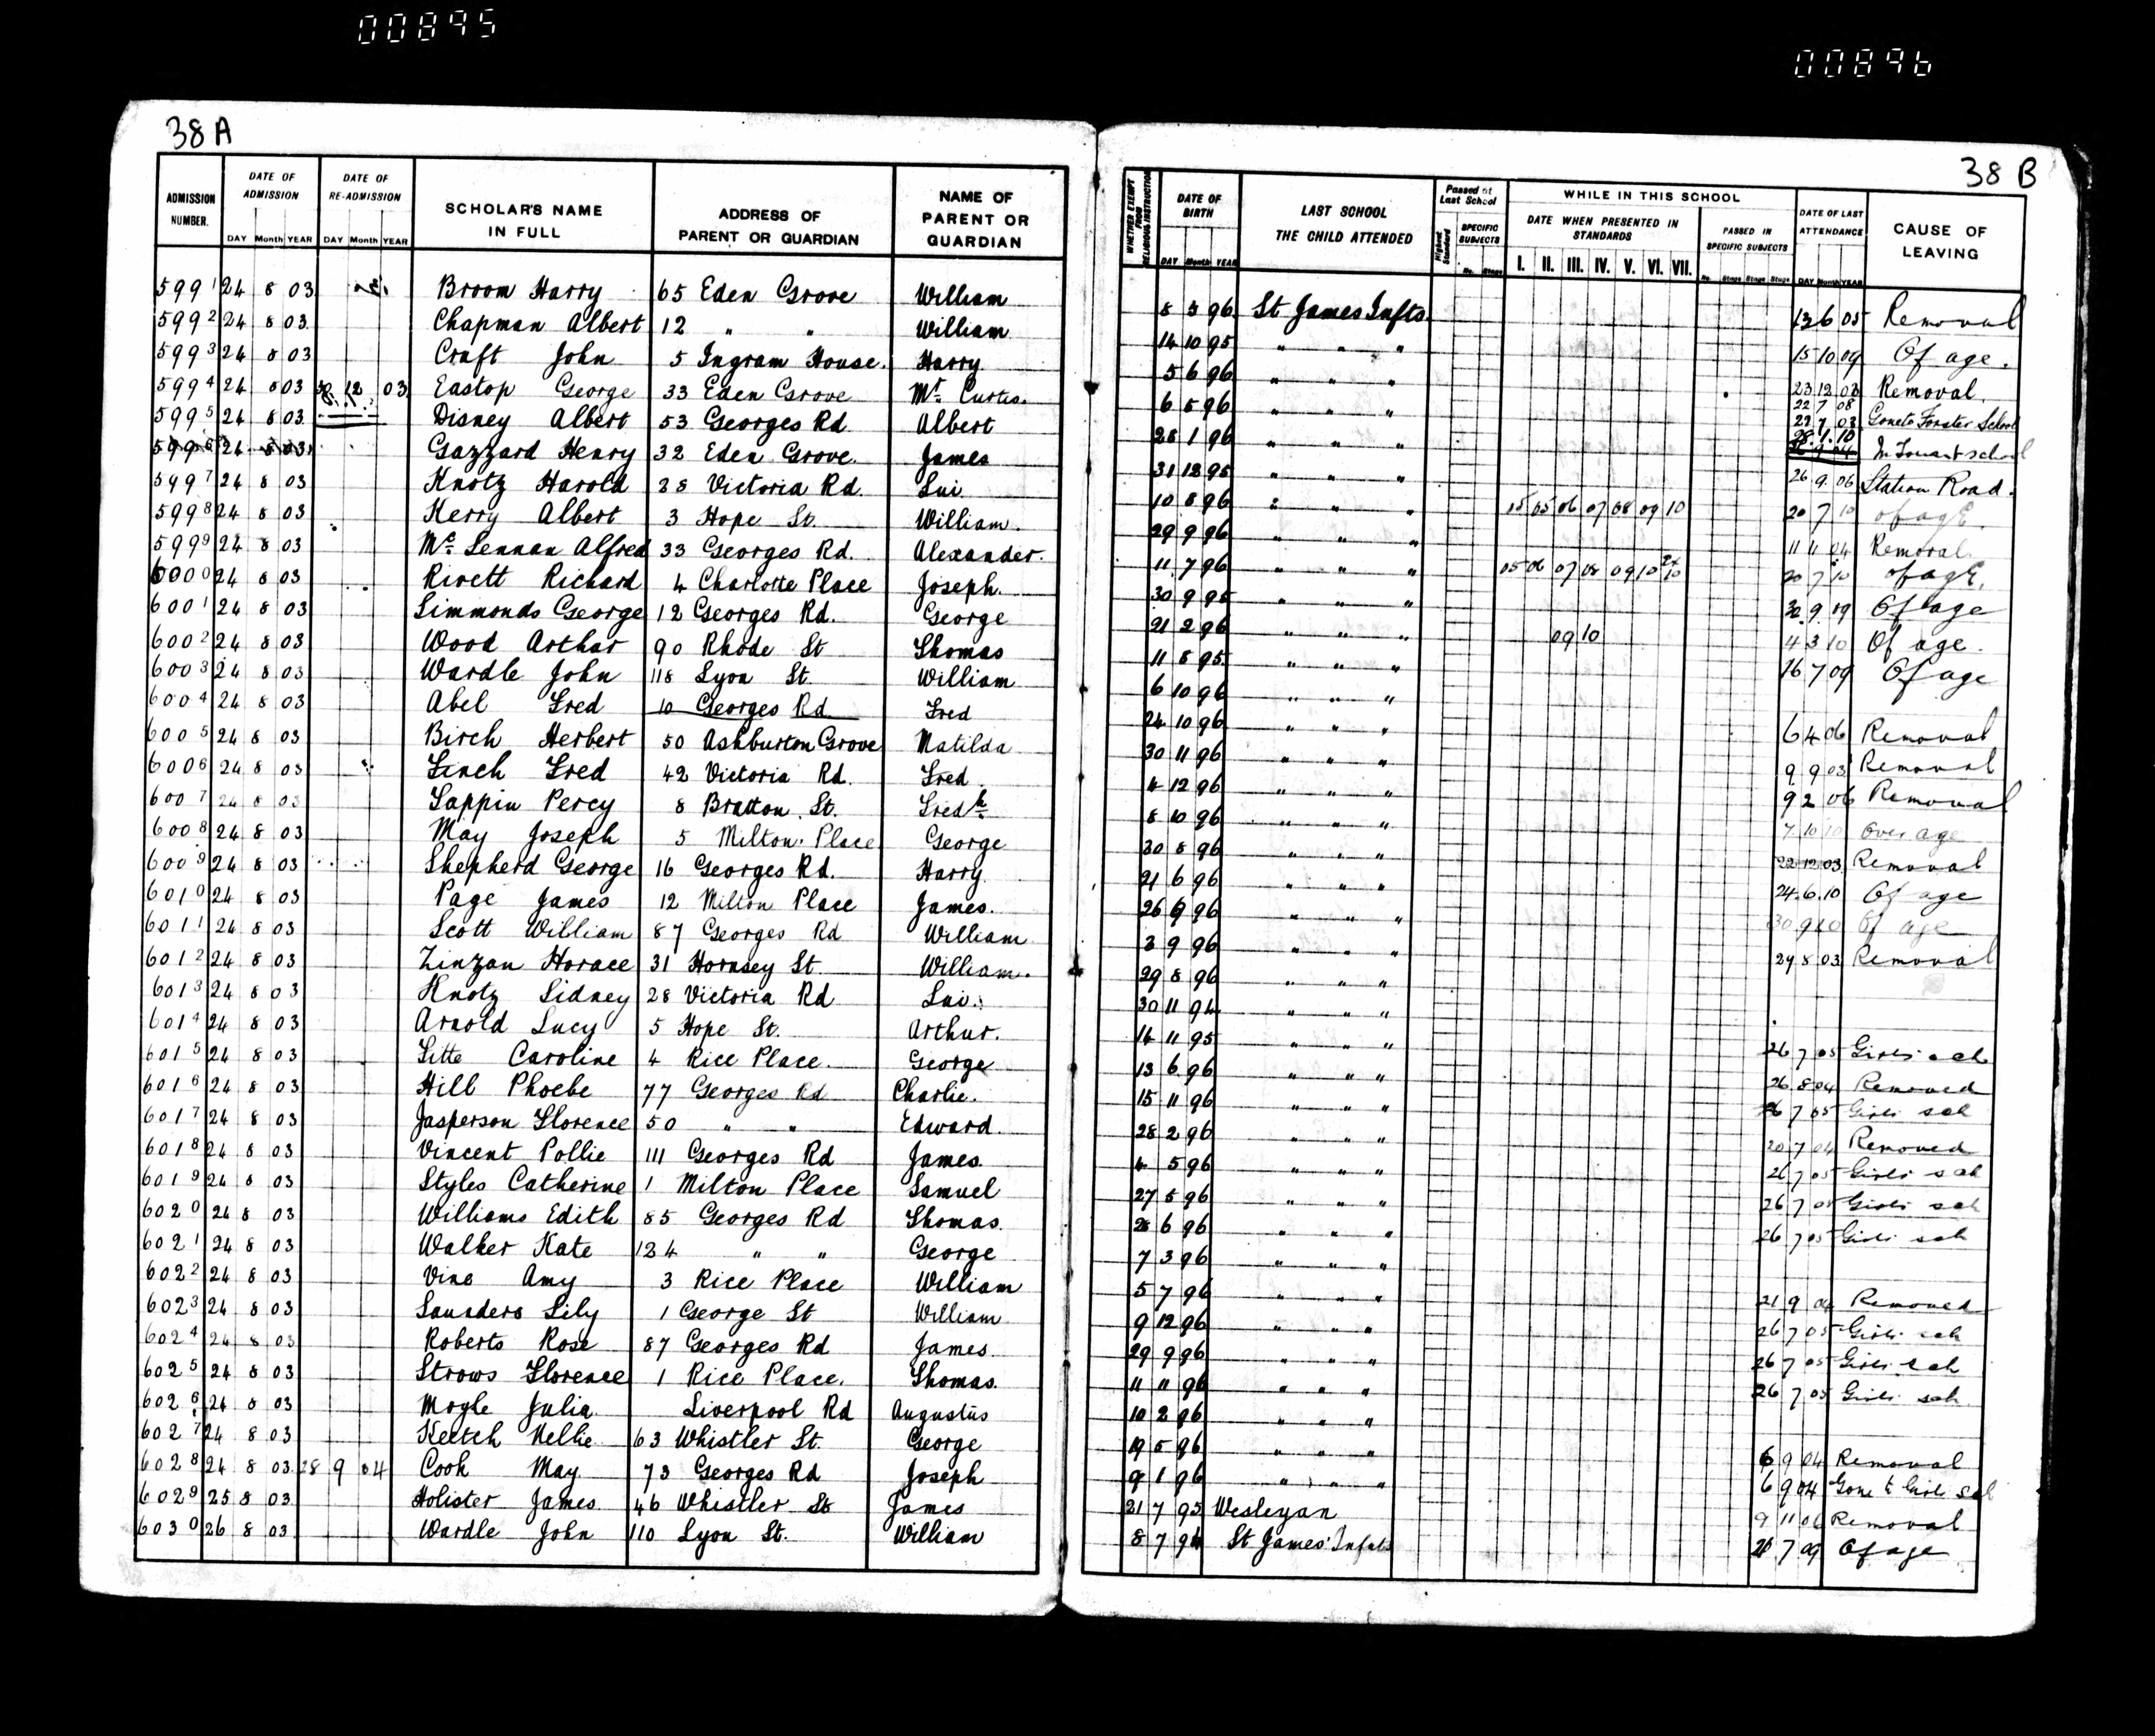 00895
00896
38 A
38 B
ADMISSION NUMBER. DATE OF ADMISSION DAY Month YEAR DATE OF RE-ADMISSION DAY Month YEAR SCHOLAR'S NAME IN FULL ADDRESS OF PARENT OR GUARDIAN NAME OF PARENT OR GUARDIAN
WHETHER EXEMPT FROM RELIGIOUS INSTRUCTION DATE OF BIRTH DAY Month YEAR LAST SCHOOL THE CHILD ATTENDED Passed at Last School Highest Standard SPECIFIC SUBJECTS No. Stage WHILE IN THIS SCHOOL DATE WHEN PRESENTED IN STANDARDS I. II. III. IV. V. VI. VII. PASSED IN SPECIFIC SUBJECTS No. Stage Stage Stage DATE OF LAST ATTENDANCE DAY Month YEAR CAUSE OF LEAVING
5991 24 8 03 Broom Harry 65 Eden Grove William 8 3 96 St James Infts 13 6 05 Removal
5992 24 8 03 Chapman Albert 12 " " William 14 10 95 " " " 15 10 09 Of age.
5993 24 8 03 Craft John 5 Ingram House. Harry 5 6 96 " " " 23 12 03 Removal.
5994 24 8 03 12 03 Eastop George 33 Eden Grove Mr. Curtis. 6 5 96 " " " 22 7 08 Gone to Forster School
5995 24 8 03 Disney Albert 53 Georges Rd Albert 28 1 96 " " " 28.1.10
5996 24 8 03 Gazzard Henry 32 Eden Grove. James 31 12 95 " " " 26 9 06 Station Road.
5997 24 8 03 Knotz Harold 28 Victoria Rd. Lui 10 8 96 " " " 05 06 07 08 09 10 20 7 10 of age.
5998 24 8 03 Kerry Albert 3 Hope St. William. 29 9 96 " " " 11 11 04 Removal
5999 24 8 03 Mc. Lennan Alfred 33 Georges Rd. Alexander. 11 7 96 " " " 05 06 07 08 09 10 20 7 10 of age.
6000 24 8 03 Rivett Richard 4 Charlotte Place Joseph. 30 9 95 " " " 30.9.09 Of age
6001 24 8 03 Simmonds George 12 Georges Rd. George 21 2 96 " " " 09 10 4 3 10 Of age.
6002 24 8 03 Wood Arthur 90 Rhode St Thomas 11 8 95 " " " 16 7 09 Of age
6003 24 8 03 Wardle John 118 Lyon St. William 6 10 96 " " "
6004 24 8 03 Abel Fred 10 Georges Rd Fred 24 10 96 " " " 6 4 06 Removal
6005 24 8 03 Birch Herbert 50 Ashburton Grove Matilda 30 11 96 " " " 9 9 03 Removal
6006 24 8 03 Finch Fred 42 Victoria Rd. Fred 4 12 96 " " " 9 2 06 Removal
6007 24 8 03 Tappin Percy 8 Bratton St. Fredk 8 10 96 " " " 7 10 10 Over age
6008 24 8 03 May Joseph 5 Milton Place George 30 8 96 " " " 22 12 03 Removal
6009 24 8 03 Shepherd George 16 Georges Rd. Harry 21 6 96 " " " 24.6.10 Of age
6010 24 8 03 Page James 12 Milton Place James. 26 9 96 " " " 30 9 10 Of age
6011 24 8 03 Scott William 87 Georges Rd William 3 9 96 " " " 29 8 03 Removal
6012 24 8 03 Zinzan Horace 31 Hornsey St. William. 29 8 96 " " "
6013 24 8 03 Knotz Sidney 28 Victoria Rd Lui. 30 11 94 " " "
6014 24 8 03 Arnold Lucy 5 Hope St. Arthur. 14 11 95 " " " 26 7 05 Girls sch
6015 24 8 03 Titte Caroline 4 Rice Place. George 13 6 96 " " " 26 8 04 Removed
6016 24 8 03 Hill Phoebe 77 Georges Rd Charlie. 15 11 96 " " " 26 7 05 Girls sch
6017 24 8 03 Jasperson Florence 50 " " Edward 28 2 96 " " " 20 7 04 Removed
6018 24 8 03 Vincent Pollie 111 Georges Rd James. 4 5 96 " " " 26 7 05 Girls sch
6019 24 8 03 Styles Catherine 1 Milton Place Samuel 27 5 96 " " " 26 7 05 Girls sch
6020 24 8 03 Williams Edith 85 Georges Rd Thomas. 28 6 96 " " " 26 7 05 Girls sch
6021 24 8 03 Walker Kate 124 " " George 7 3 96 " " "
6022 24 8 03 Vine Amy 3 Rice Place William 5 7 96 " " " 21 9 04 Removed
6023 24 8 03 Saunders Lily 1 George St William 9 12 96 " " " 26 7 05 Girls sch
6024 24 8 03 Roberts Rose 87 Georges Rd James 29 9 96 " " " 26 7 05 Girls sch
6025 24 8 03 Strows Florence 1 Rice Place. Thomas. 11 11 96 " " " 26 7 05 Girls sch
6026 24 8 03 Moyle Julia Liverpool Rd Augustus 10 2 96 " " "
6027 24 8 03 Keetch Nellie 63 Whistler St. George 19 5 96 " " " 6 9 04 Removal
6028 24 8 03 28 9 04 Cook May 73 Georges Rd Joseph 9 1 96 " " " 6 9 04 Gone to Girls sch
6029 25 8 03 Holister James 46 Whistler St James 21 7 95 Wesleyan 9 11 06 Removal
6030 26 8 03 Wardle John 110 Lyon St. William 8 7 94 St James' Infats 7 09 Of age